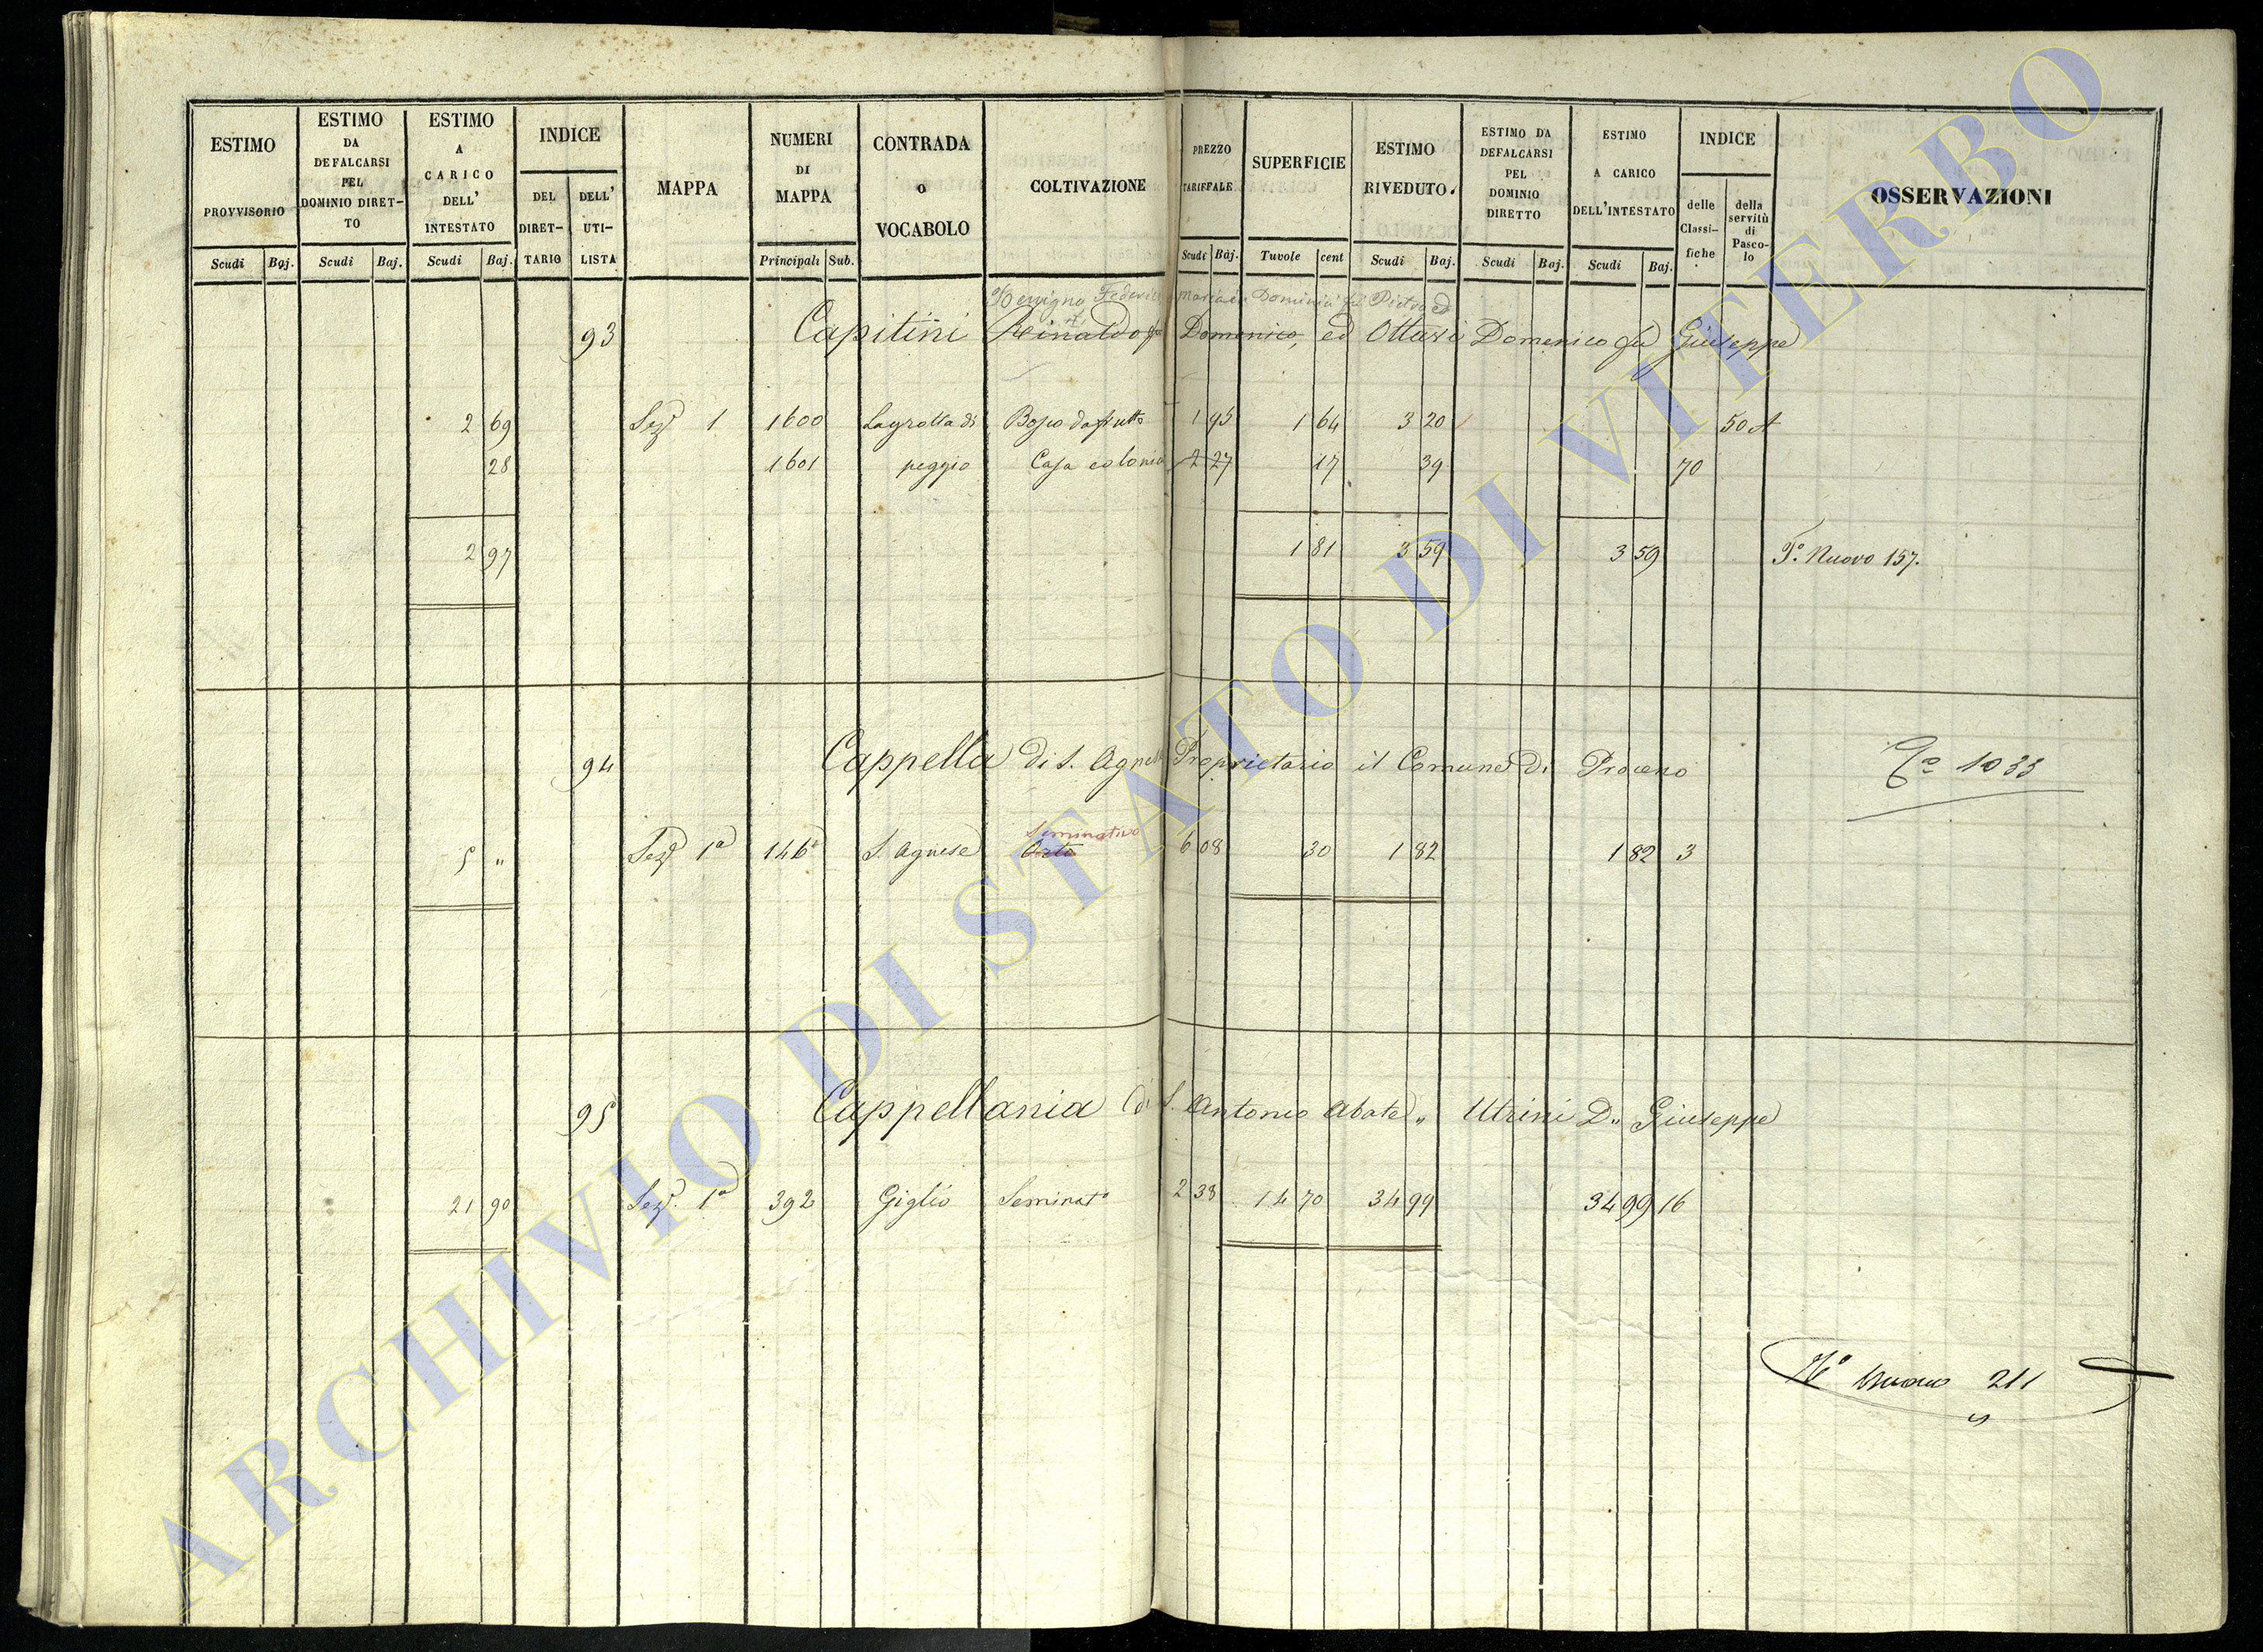 ESTIMO PROVVISORIO
Scudi Baj.
ESTIMO DA DEFALCARSI PEL DOMINIO DIRET-TO
Scudi Baj.
ESTIMO A CARICO DELL' INTESTATO
Scudi Baj.
INDICE
DEL DIRET-TARIO
DELL' UTI-LISTA
MAPPA
NUMERI DI MAPPA
Principali Sub.
CONTRADA O VOCABOLO
COLTIVAZIONE
PREZZO TARIFFALE
Scudi Baj.
SUPERFICIE
Tuvole cent
ESTIMO RIVEDUTO.
Scudi Baj.
ESTIMO DA DEFALCARSI PEL DOMINIO DIRETTO
Scudi Baj.
ESTIMO A CARICO DELL'INTESTATO
Scudi Baj.
INDICE
delle Classi-fiche
della servitù di Pasco-lo
OSSERVAZIONI
Benigno Federico Maria Dominici fu Pietro ed
93 Capitini Rinaldo fu Domenico, ed Ottavi Domenico fu Giuseppe
2 69 Sezе 1 1600 La grotta di Bosco da frutto 1 95 1 64 3 20 50 A
28 1601 peggio Casa colonia 2 27 17 39 70
2 97 1 81 3 59 3 59 To. Nuovo 157.
94 Cappella di S. Agnese Proprietario il Comune di Proceno To 1033
Seminativo
5 " Seze 1a 146 S. Agnese Orto 6 08 30 1 82 1 82 3
95 Cappellania di S. Antonio Abate " Utrini D. Giuseppe
21 90 Seze. 1a 392 Giglio Seminato 2 38 14 70 34 99 34 99 16
No nuovo 211
ARCHIVIO DI STATO DI VITERBO